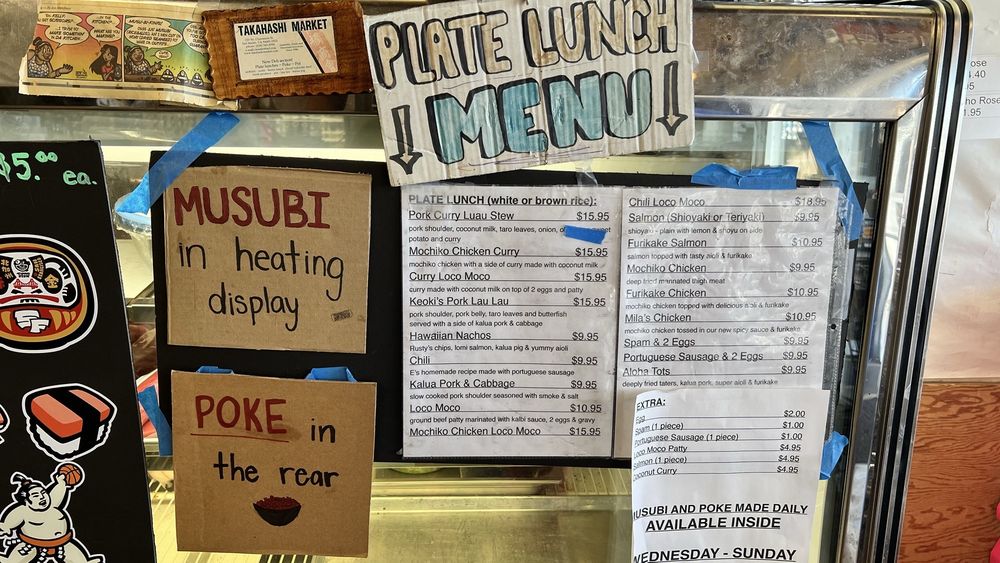 TAKAHASHI MARKET
PLATE LUNCH
MENU
$5.00 ea.
MUSUBI
in heating
display
POKE in
the rear
PLATE LUNCH (white or brown rice):
Pork Curry Luau Stew $15.95
pork shoulder, coconut milk, taro leaves, onion,
potato and curry
Mochiko Chicken Curry $15.95
mochiko chicken with a side of curry made with coconut milk
Curry Loco Moco $15.95
curry made with coconut milk on top of 2 eggs and patty
Keoki's Pork Lau Lau $15.95
pork shoulder, pork belly, taro leaves and butterfish
served with a side of kalua pork & cabbage
Hawaiian Nachos $9.95
Rusty's chips, lomi salmon, kalua pig & yummy aioli
Chili $9.95
E's homemade recipe made with portuguese sausage
Kalua Pork & Cabbage $9.95
slow cooked pork shoulder seasoned with smoke & salt
Loco Moco $10.95
ground beef patty marinated with kalbi sauce, 2 eggs & gravy
Mochiko Chicken Loco Moco $15.95
Chili Loco Moco $18.95
Salmon (Shioyaki or Teriyaki) $9.95
shioyaki - plain with lemon & shoyu on side
Furikake Salmon $10.95
salmon topped with tasty aioli & furikake
Mochiko Chicken $9.95
deep fried marinated thigh meat
Furikake Chicken $10.95
mochiko chicken topped with delicious aioli & furikake
Mila's Chicken $10.95
mochiko chicken tossed in our new spicy sauce & furikake
Spam & 2 Eggs $9.95
Portuguese Sausage & 2 Eggs $9.95
Aloha Tots $9.95
deeply fried taters, kalua pork, super aioli & furikake
EXTRA:
Egg $2.00
Spam (1 piece) $1.00
Portuguese Sausage (1 piece) $1.00
Loco Moco Patty $4.95
Salmon (1 piece) $4.95
Coconut Curry $4.95
MUSUBI AND POKE MADE DAILY
AVAILABLE INSIDE
WEDNESDAY - SUNDAY